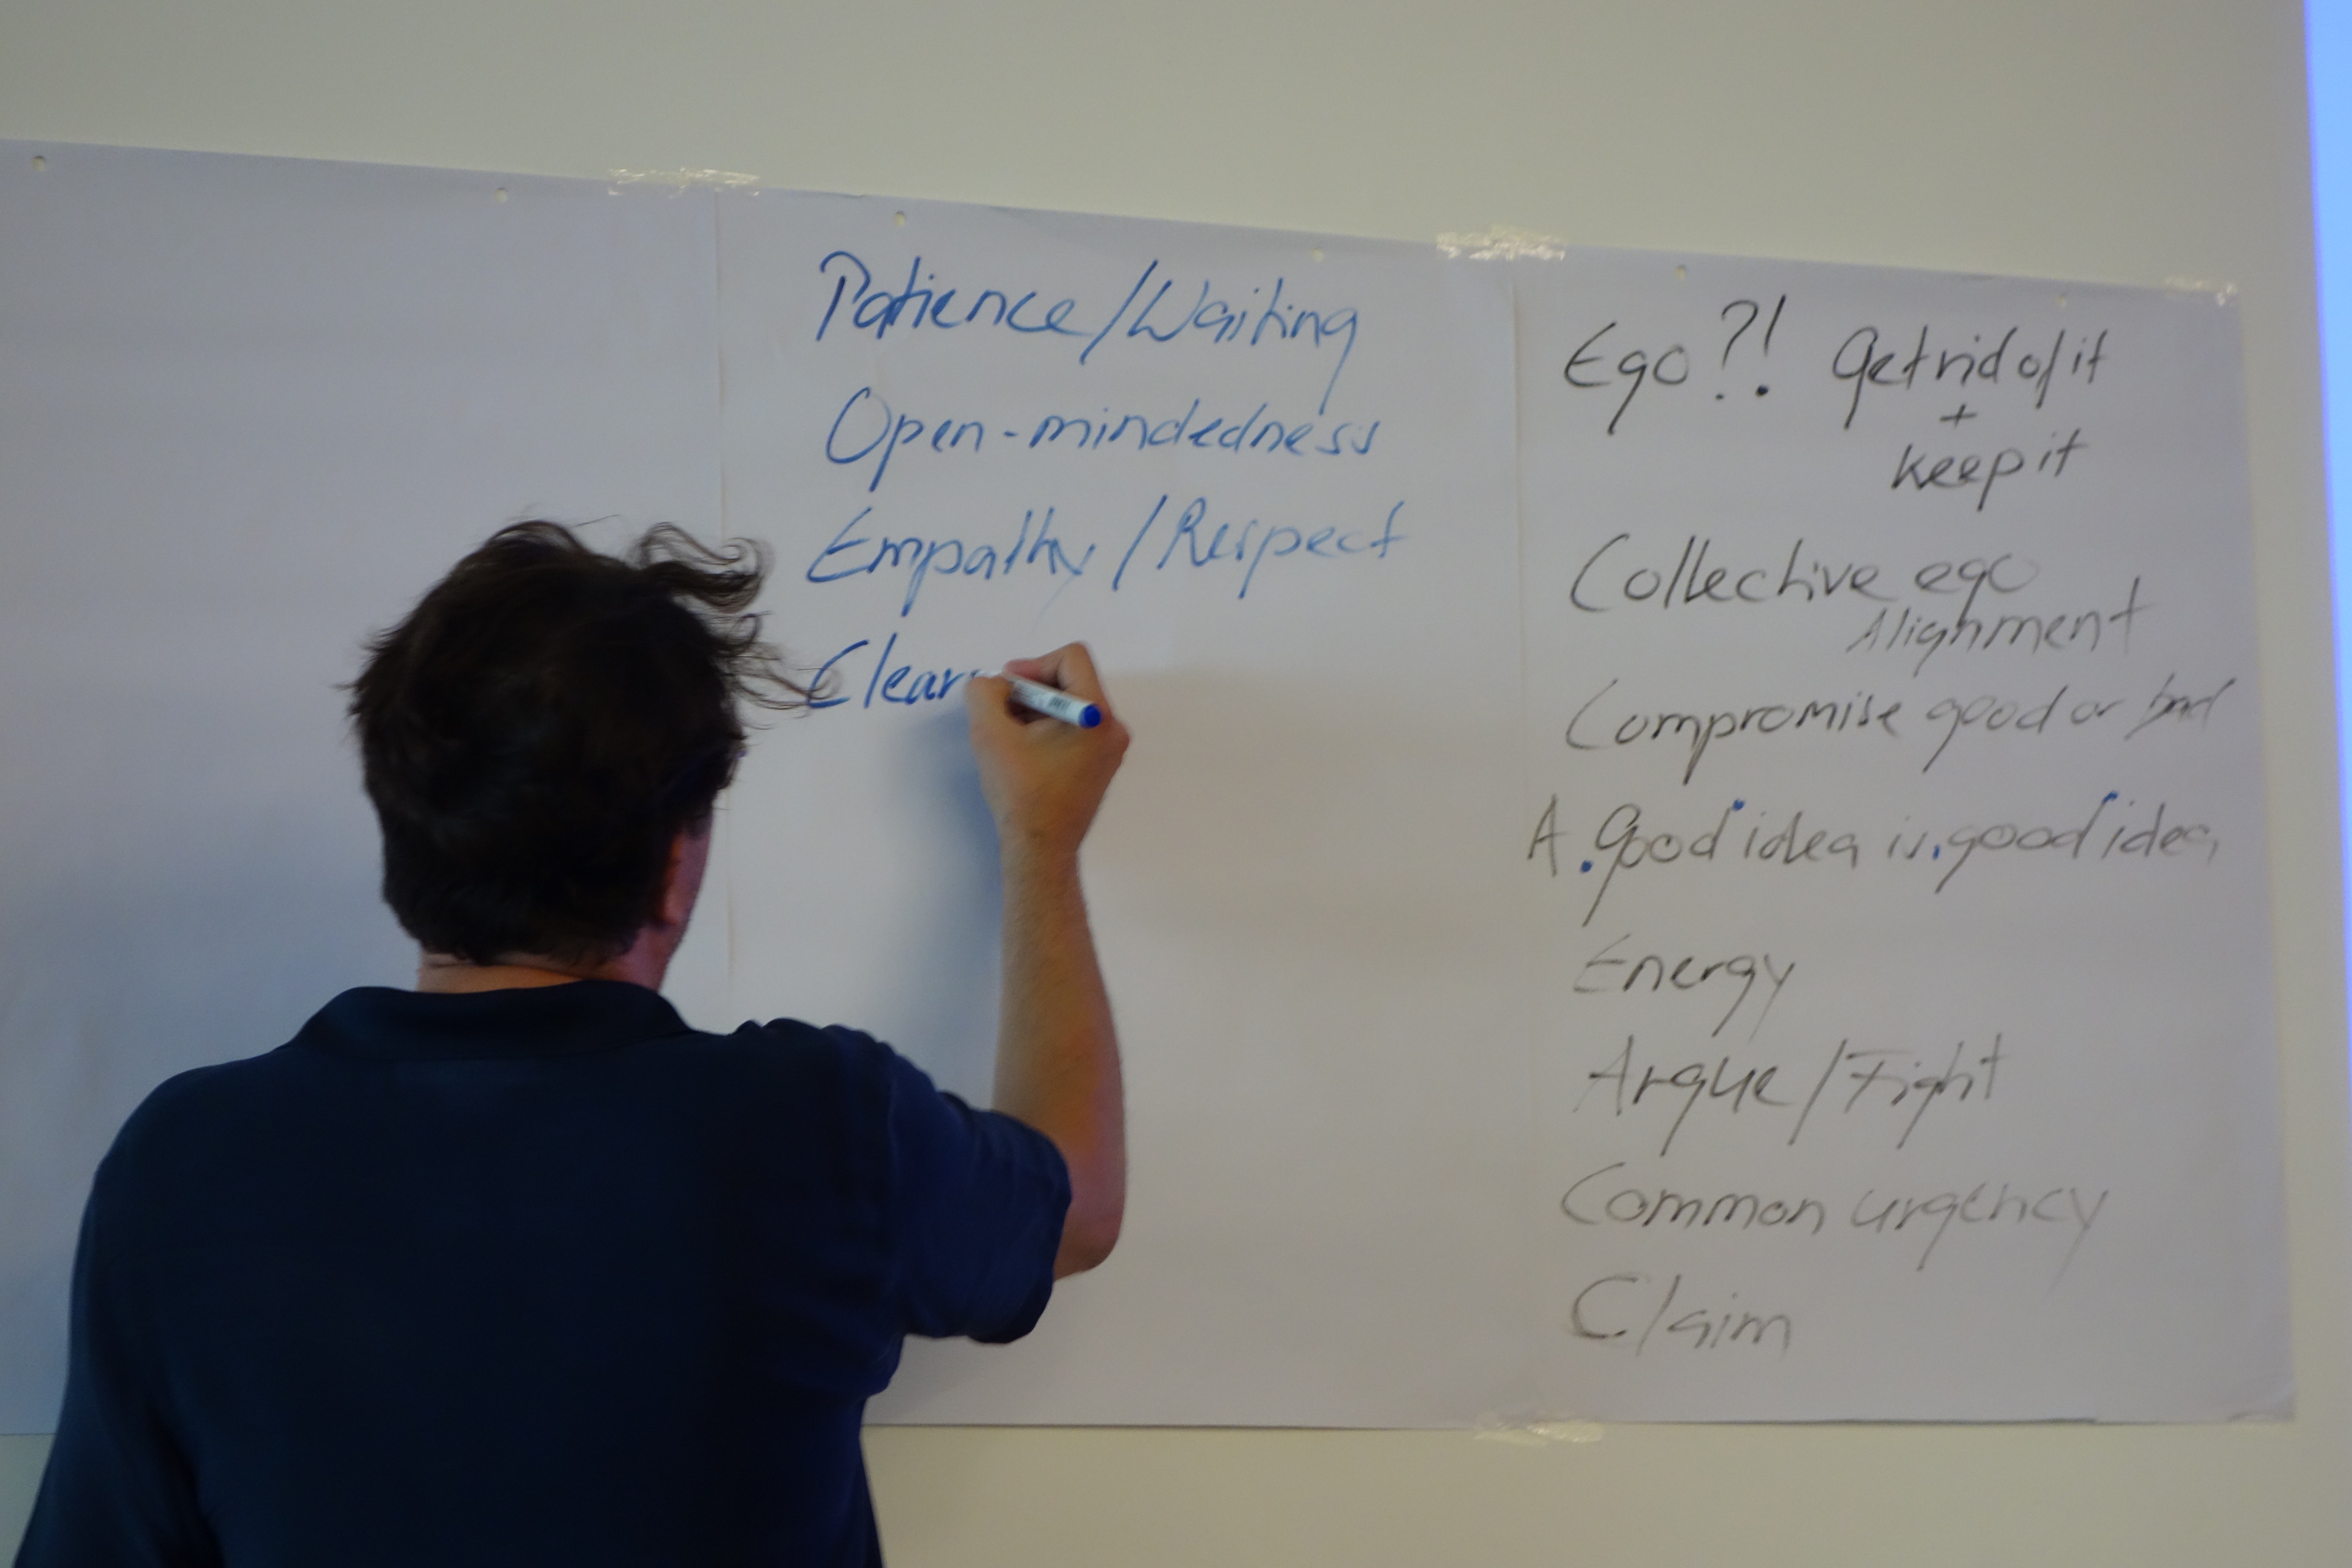 Patience/Waiting
Open-mindedness
Empathy/Respect
Clear
Ego?! Get rid of it
+
keep it
Collective ego
Alignment
Compromise good or bad
A. good idea is. good idea
Energy
Argue/Fight
Common urgency
Claim